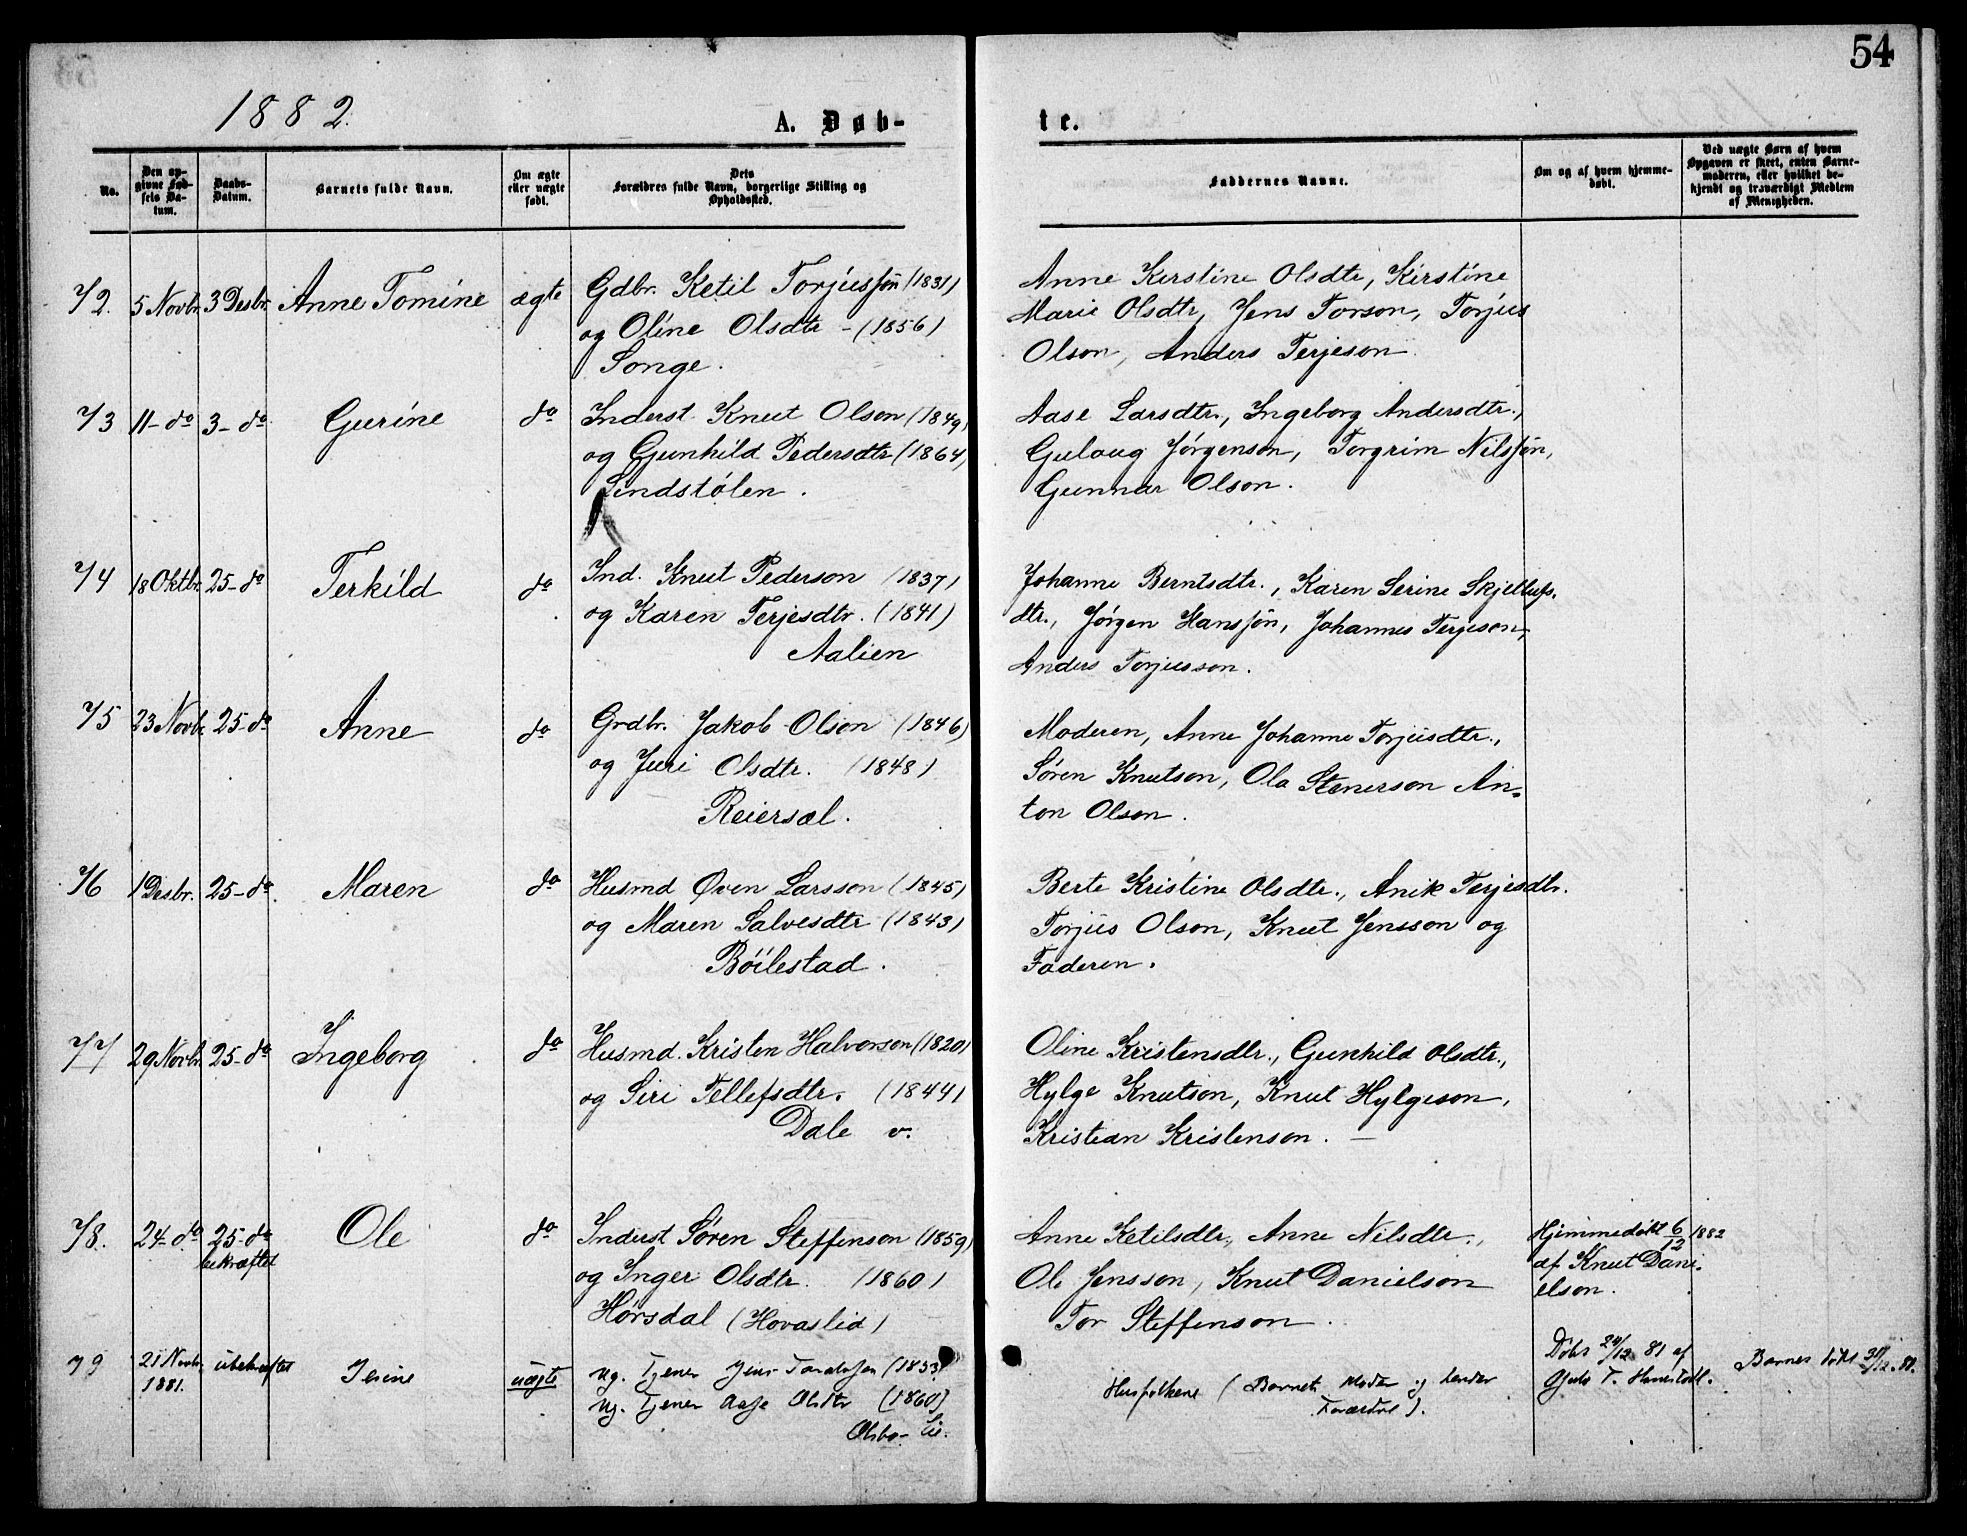 54
1882.
A. Døb-
te.
No.
Den op-
givne Fød-
sels Da-
tum.
Daabs-
Datum.
Barnets fulde Navn.
Om ægte
eller uægte
født.
Dets
Forældres fulde Navn, borgerlige Stilling og
Opholdssted.
Faddernes Navne.
Om og af hvem hjemme-
døbt.
Ved uægte Børn af hvem
Opgaven er skeet, enten Barne-
moderen, eller hvilket be-
kjendt og troværdigt Medlem
af Menigheden.
72. 5 Novbr. 3 Desbr. Anne Tomine ægte
Gdbr. Ketil Torjussøn (1831)
og Oline Olsdtr - (1856)
Songe.
Anne Kirstine Olsdtr, Kirstine
Marie Olsdtr, Jens Torson, Torjus
Olson, Anders Terjeson
73 11- do 3- do Gurine do
Inderst Knut Olson (1849)
og Gunhild Pedersdtr (1864)
Lindstølen.
Aase Larsdtr., Ingeborg Andersdtr.,
Guloug Jørgenson, Torgrim Nilssøn,
Gunnar Olson.
74 18 Oktbr. 25- do Terkild do
Ind. Knut Pederson (1837)
og Karen Terjesdtr. (1841)
Aalien
Johanne Berntsdtr., Karen Serine Skjellufs-
dtr., Jørgen Hanssøn, Johannes Terjeson,
Anders Torjusson.
75 23 Novbr. 25- do Anne do
Grdbr. Jakob Olson (1846)
og Juri Olsdtr. (1848)
Reiersøl.
Moderen, Anne Johanne Torjusdtr.,
Søren Knutson, Ola Stenerson An-
ton Olson.
76 1 Desbr. 25- do. Maren do
Husmd Øven Larsson (1845)
og Maren Salvesdtr (1843)
Bøilestad.
Berte Kristine Olsdtr., Anik Terjesdtr.
Torjus Olson, Knut Jensson og
Faderen.
77 29 Novbr. 25- do Ingeborg do
Husmd. Kristen Halvorson (1820)
og Siri Tellefsdtr. (1844)
Dale v.
Oline Kristensdtr., Gunhild Olsdtr.,
Hylge Knutson, Knut Hylgeson,
Kristian Kristenson. -
78. 24- do 25- do
bekræftet
Ole do
Inderst Søren Steffenson (1859)
og Inger Olsdtr. (1860)
Hørsdal (Hovaslid)
Anne Ketilsdtr., Anne Nilsdtr.,
Ole Jensson, Knut Danielson
Tor Steffenson.
Hjimmedøbt 6/12 1882
af Knut Dani-
elson.
79 21 Novbr.
1881.
ubekræftet uægte
Ug. Tjener Jens (1853)
Ug. Tjener Aase Olsdtr (1860)
Husfolkene (Barnets Moder og
Døbt 29/12 81 af